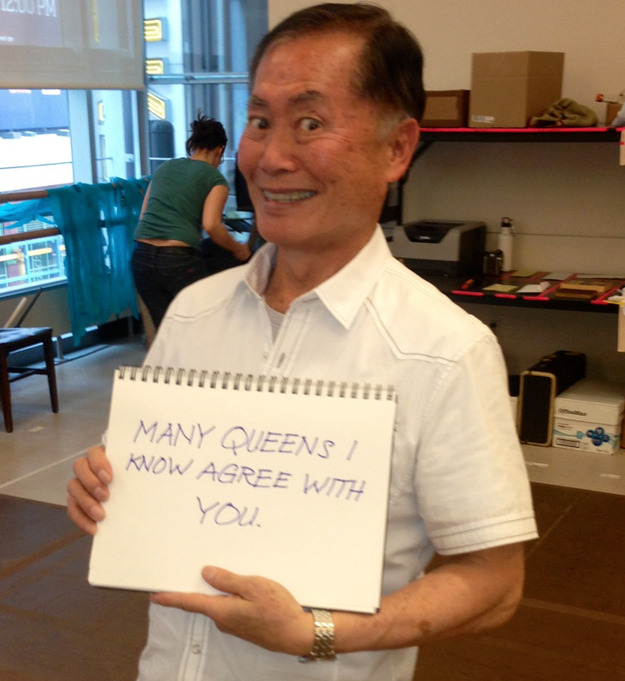 12:00 PM
MANY QUEENS I
KNOW AGREE WITH
YOU.
OfficeMax